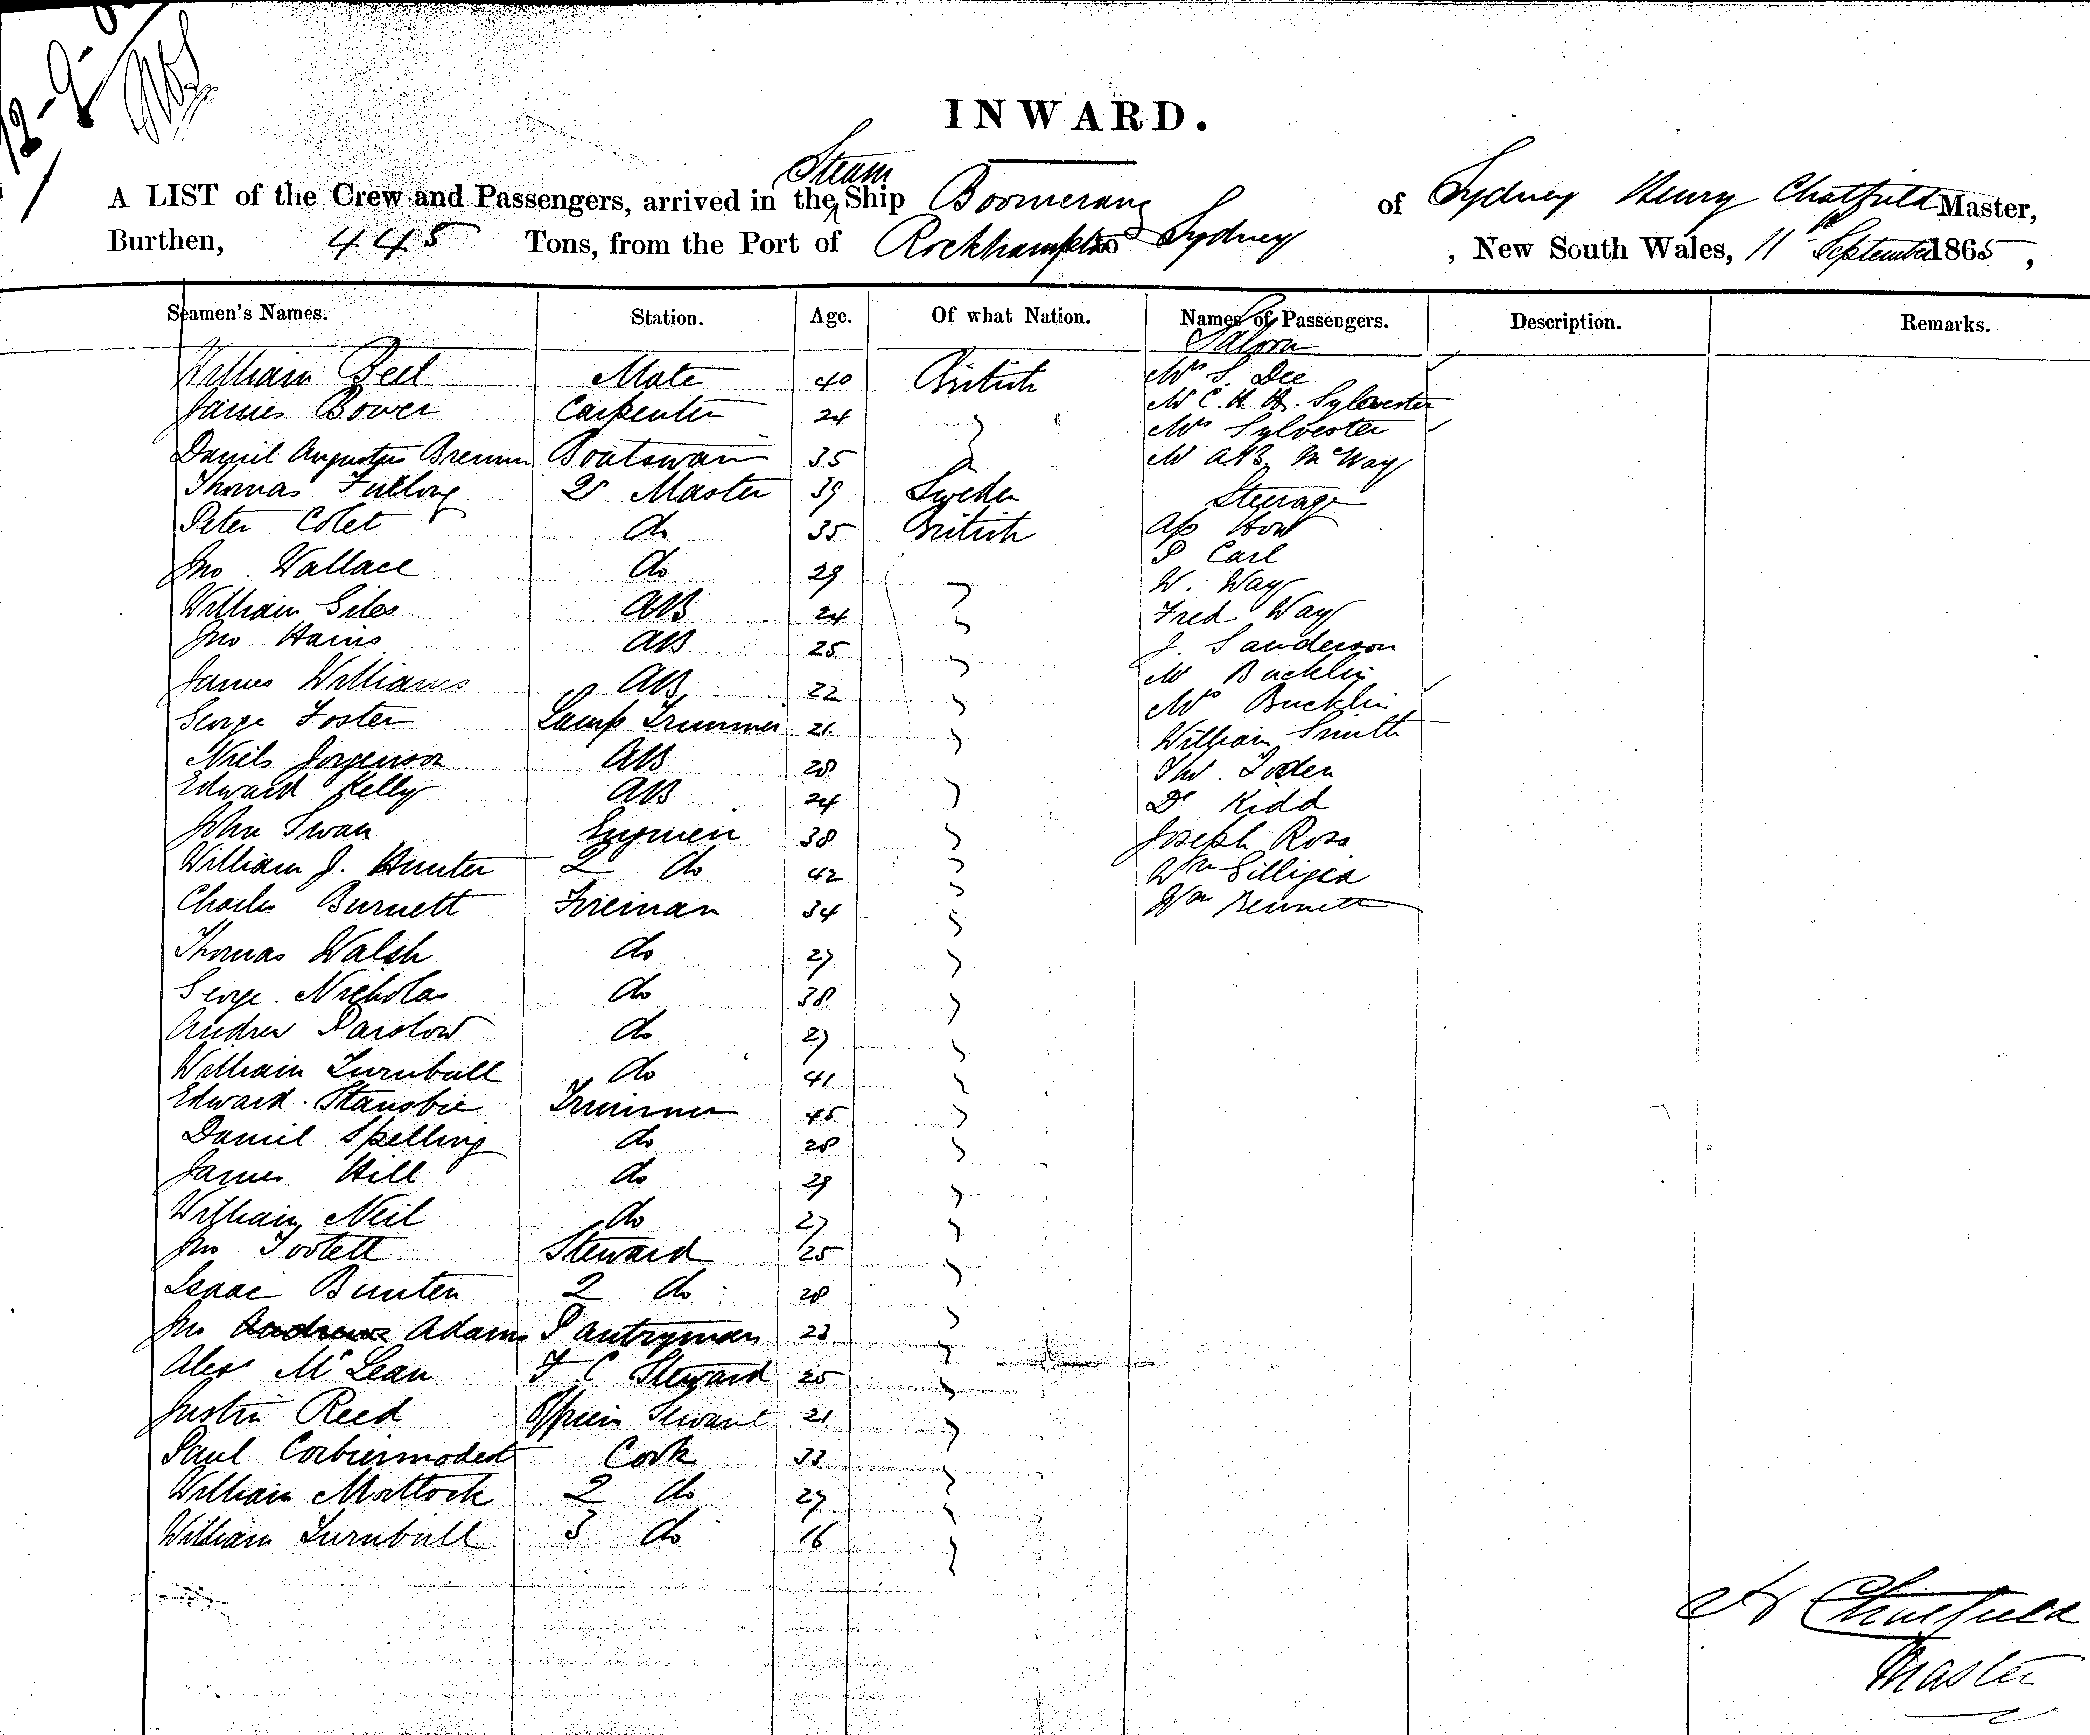 12-9-
INWARD.
A LIST of the Crew and Passengers, arrived in the Steam Ship Boomerang of Sydney Henry Chatfield Master,
Burthen, 445 Tons, from the Port of Rockhampton to Sydney, New South Wales, 11 September 1865,
Seamen's Names. Station. Age. Of what Nation. Names of Passengers. Description. Remarks.
Saloon
William Bell Mate 40 British Mrs S. Dee
James Bower Carpenter 24 " Mr C. H. H. Sylvester
Mrs Sylvester
Daniel Augustus Brennan Boatswain 35 " Mr A B McWay
Thomas Furlong Qr Master 39 Sweden Steerage
Peter Colet do 35 British Ah
P Carl
Jno Wallace do 29 " W. Way
William Giles AB 24 " Fred Way
Jno Hains AB 25 " J. Sanderson
Mr Bucklin
James Williams AB 22 " Mrs Bucklin
George Foster Lamp Trimmer 21 " William Smith
Niels Jorgenson AB 28 " Tho.
Edward Kelly AB 24 " Dr Kidd
John Swan Engineer 38 " Joseph Ross
William J. Hunter 2 do 42 " Wm
Charles Burnett Fireman 34 " Wm Bennett
Thomas Walsh do 27 "
George Nicholas do 38 "
Andrew Parslow do 27 "
William Turnbull do 41 "
Edward Stansbie Trimmer 45 "
Daniel Spelling do 28 "
James Hill do 29 "
William Neil do 27 "
Jno Tootell Steward 25 "
Isaac Bunten 2 do 28 "
Jno Andrews Adams Pantryman 23 "
Alexr McLean F C Steward 25 "
Justin Reed Officers Servant 21 "
Paul Corbiermodest Cook 33 "
William Mattock 2 do 27 "
William Turnbull 3 do 16 "
H Chatfield
Master